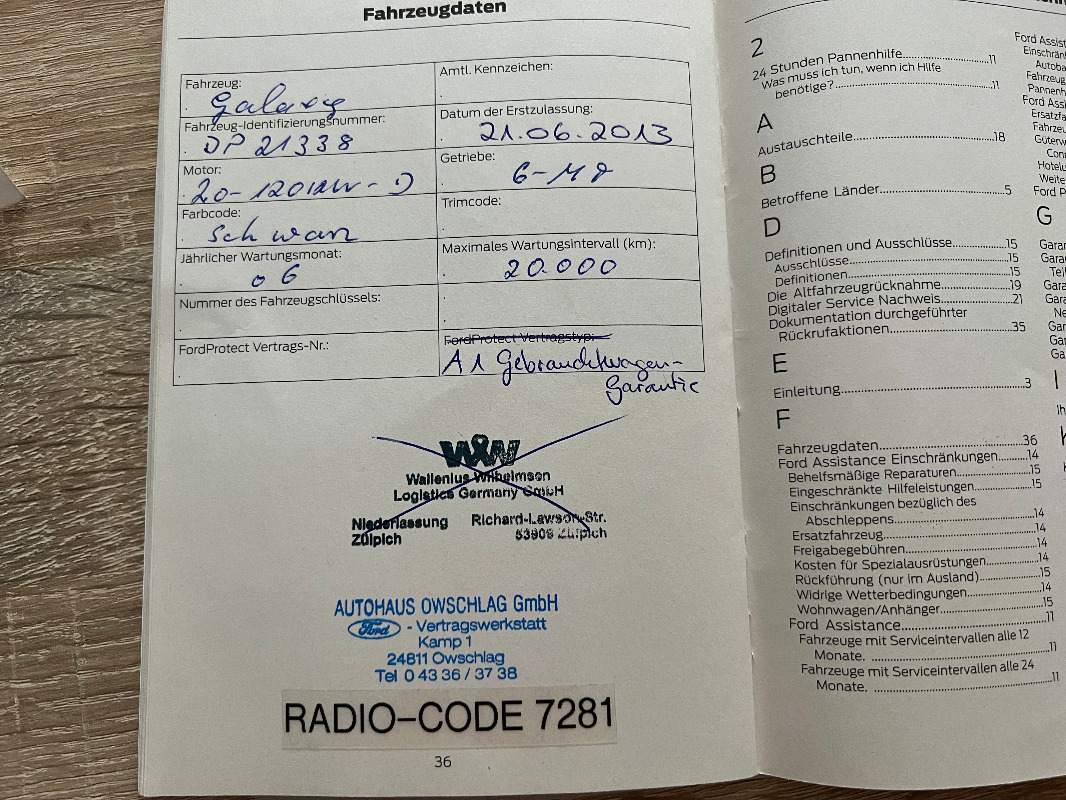 Fahrzeugdaten
Fahrzeug:
Galaxy
Amtl. Kennzeichen:
Fahrzeug-Identifizierungsnummer:
DP 21338
Datum der Erstzulassung:
21.06.2013
Motor:
20-120KW-D
Getriebe:
6-M
Farbcode:
Schwarz
Trimcode:
Jährlicher Wartungsmonat:
06
Maximales Wartungsintervall (km):
20.000
Nummer des Fahrzeugschlüssels:
FordProtect Vertrags-Nr.:
FordProtect Vertragstyp:
A1 Gebrauchtwagen-
Garantie
W&W
Wallenius Wilhelmsen
Logistics Germany GmbH
Niederlassung Richard-Lawson-Str.
Zülpich 53909 Zülpich
AUTOHAUS OWSCHLAG GmbH
Ford - Vertragswerkstatt
Kamp 1
24811 Owschlag
Tel 0 43 36 / 37 38
RADIO-CODE 7281
36
2
24 Stunden Pannenhilfe..................11
Was muss ich tun, wenn ich Hilfe
benötige?..................11
A
Austauschteile..................18
B
Betroffene Länder..................5
D
Definitionen und Ausschlüsse..................15
Ausschlüsse..................15
Definitionen..................15
Die Altfahrzeugrücknahme..................19
Digitaler Service Nachweis..................21
Dokumentation durchgeführter
Rückrufaktionen..................35
E
Einleitung..................3
F
Fahrzeugdaten..................36
Ford Assistance Einschränkungen..........14
Behelfsmäßige Reparaturen..................15
Eingeschränkte Hilfeleistungen..................15
Einschränkungen bezüglich des
Abschleppens..................14
Ersatzfahrzeug..................14
Freigabegebühren..................14
Kosten für Spezialausrüstungen..................14
Rückführung (nur im Ausland)..................15
Widrige Wetterbedingungen..................14
Wohnwagen/Anhänger..................15
Ford Assistance..................11
Fahrzeuge mit Serviceintervallen alle 12
Monate. ..................11
Fahrzeuge mit Serviceintervallen alle 24
Monate. ..................11
Ford Assist
Einschrän
Autoba
Fahrzeug
Pannenh
Ford Assi
Ersatzfa
Fahrzeu
Güterw
Con
Hotelu
Weite
Ford P
G
Garan
Gara
Tei
Gara
Gara
Ne
Gar
Gar
Ga
I
Ih